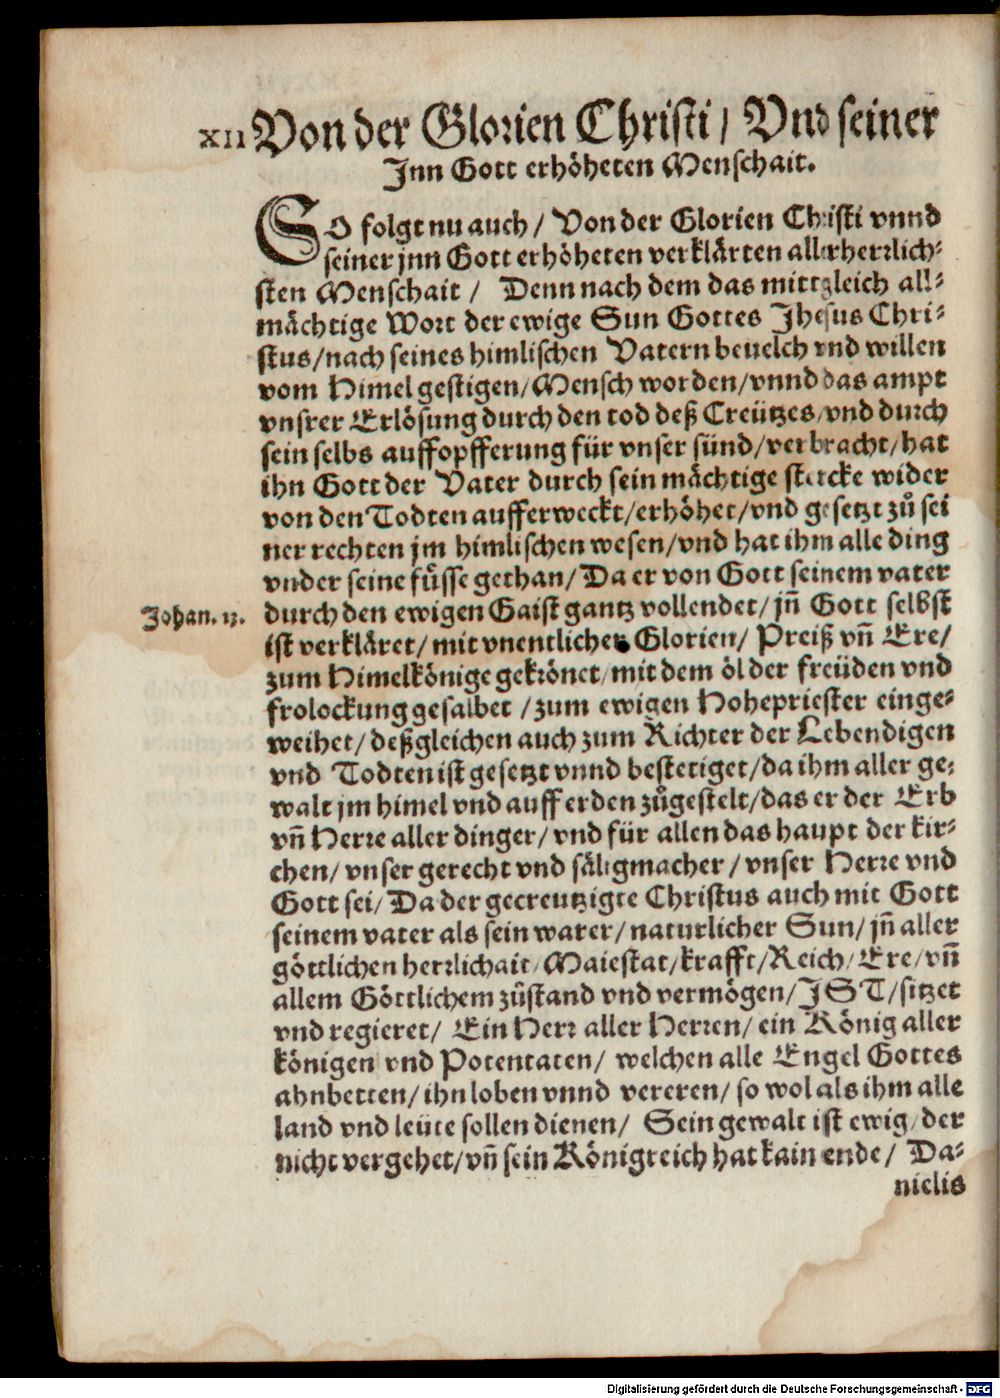 XII Von der Glorien Christi / Vnd seiner
Jnn Gott erhöheten Menschait.
SO folgt nu auch / Von der Glorien Christi vnnd
seiner jnn Gott erhöheten verklärten allerherrlich-
sten Menschait / Denn nach dem das mittgleich all-
mächtige Wort der ewige Sun Gottes Jhesus Chri-
stus / nach seines himlischen Vatern beuelch vnd willen
vom Himel gestigen / Mensch worden / vnnd das ampt
vnsrer Erlösung durch den tod deß Creützes / vnd durch
sein selbs auffopfferung für vnser sünd / verbracht / hat
ihn Gott der Vater durch sein mächtige stercke wider
von den Todten aufferweckt / erhöhet / vnd gesetzt zů sei
ner rechten jm himlischen wesen / vnd hat ihm alle ding
vnder seine fůsse gethan / Da er von Gott seinem vater
Johan. 13.
durch den ewigen Gaist gantz vollendet / jn̄ Gott selbst
ist verkläret / mit vnentlicher Glorien / Preiß vn̄ Ere /
zum Himelkönige gekrönet / mit dem öl der freüden vnd
frolockung gesalbet / zum ewigen Hohepriester einge-
weihet / deßgleichen auch zum Richter der Lebendigen
vnd Todten ist gesetzt vnnd bestetiget / da ihm aller ge-
walt jm himel vnd auff erden zůgestelt / das er der Erb
vn̄ Herre aller dinger / vnd für allen das haupt der kir-
chen / vnser gerecht vnd säligmacher / vnser Herre vnd
Gott sei / Da der gecreutzigte Christus auch mit Gott
seinem vater als sein warer / naturlicher Sun / jn̄ aller
göttlichen herrlichait / Maiestat / krafft / Reich / Ere / vn̄
allem Göttlichem zůstand vnd vermögen / JST / sitzet
vnd regieret / Ein Herr aller Herren / ein König aller
königen vnd Potentaten / welchen alle Engel Gottes
ahnbetten / ihn loben vnnd vereren / so wol als ihm alle
land vnd leüte sollen dienen / Sein gewalt ist ewig / der
nicht vergehet / vn̄ sein Königreich hat kain ende / Da-
nielis
Digitalisierung gefördert durch die Deutsche Forschungsgemeinschaft - DFG